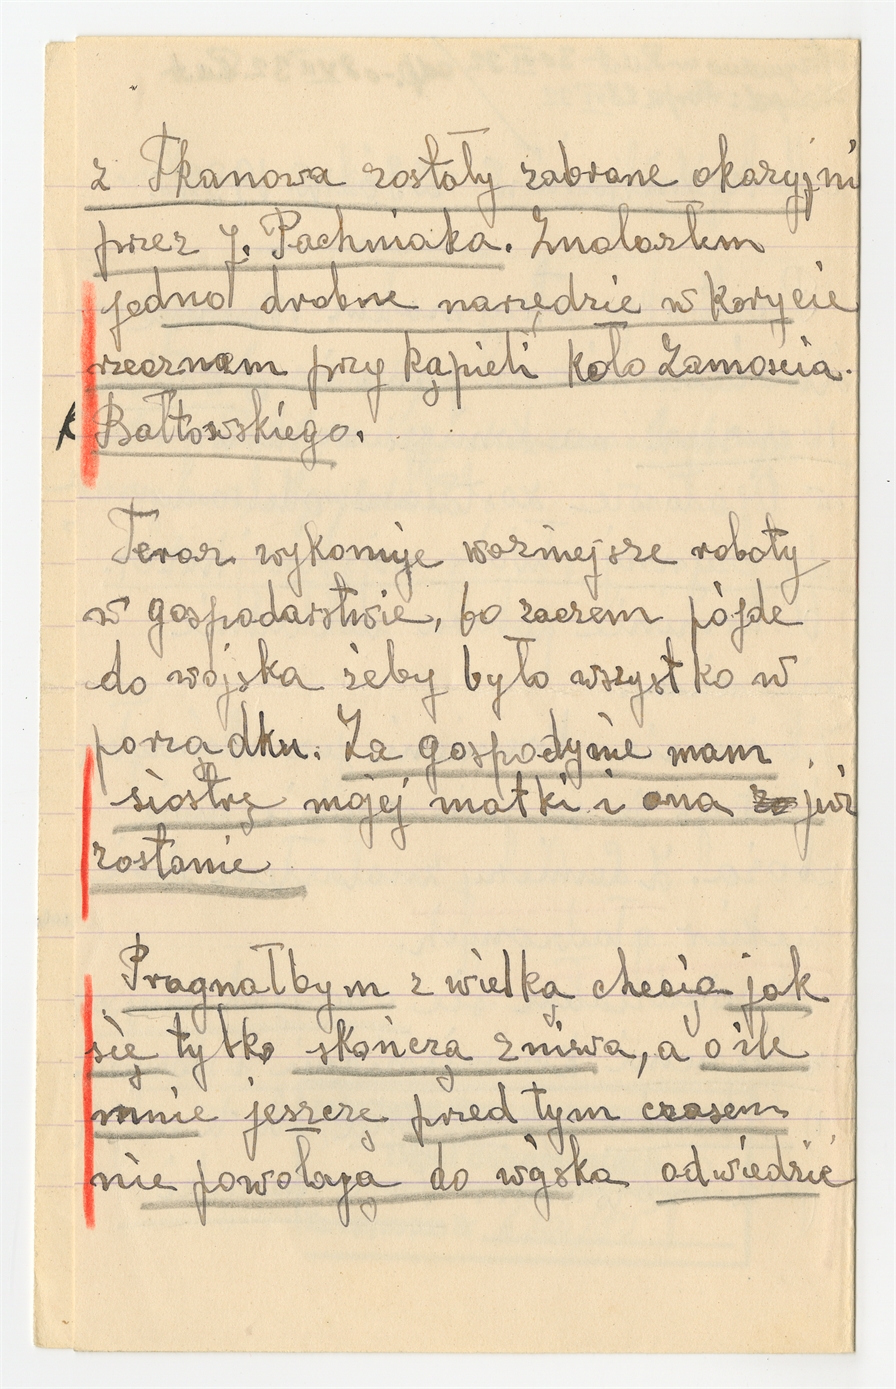 z Tkanowa zostały zabrane okazyjni
przez J. Pachniaka. Znalazłem
jedno drobne narzędzie w korycie
rzecznem przy kąpieli koło Zamościa.
Bałtowskiego.
Teraz wykonuje ważniejsze roboty
w gospodarstwie, bo zaczem pójde
do wojska żeby było wszystko w
porządku. Za gospodynie mam
siostrę mojej matki i ona już
zostanie
Pragnałbym z wielką chęcią jak
się tylko skończą żniwa, a o ile
mnie jeszcze przed tym czasem
nie powołają do wojska odwiedzić